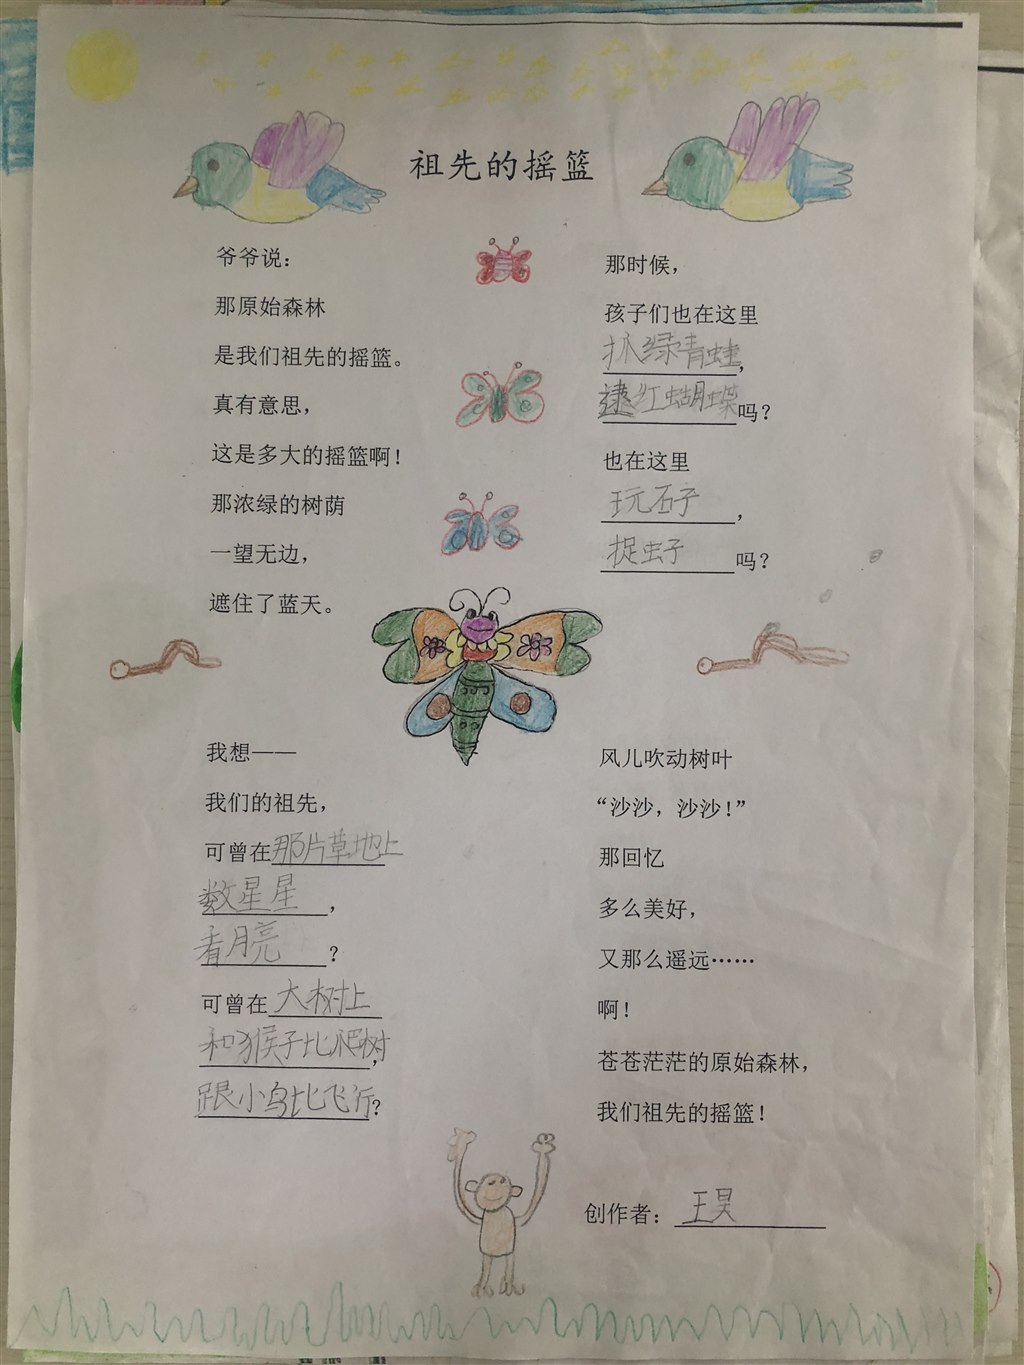 祖先的摇篮
爷爷说：
那原始森林
是我们祖先的摇篮。
真有意思，
这是多大的摇篮啊！
那浓绿的树荫
一望无边，
遮住了蓝天。
我想——
我们的祖先，
可曾在那片草地上
数星星，
看月亮？
可曾在大树上
和猴子比爬树，
跟小鸟比飞行？
那时候，
孩子们也在这里
抓绿青蛙，
逮红蝴蝶吗？
也在这里
玩石子，
捉虫子吗？
风儿吹动树叶
“沙沙，沙沙！”
那回忆
多么美好，
又那么遥远……
啊！
苍苍茫茫的原始森林，
我们祖先的摇篮！
创作者：王昊